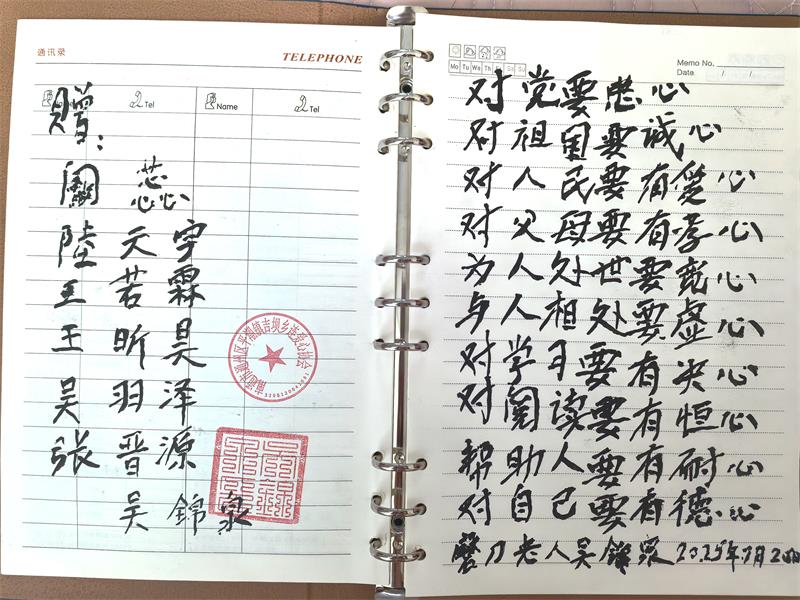 通讯录
TELEPHONE
Tel
Name
Tel
赠:
陸天宇
王若霖
王昕昊
吴羽泽
张晋源
吴锦泉
Memo No.
Mo Tu We Th Fr Sa Su
Date / /
对党要忠心
对祖国要诚心
对人民要有爱心
对父母要有孝心
为人处世要宽心
与人相处要虚心
对学习要有决心
对阅读要有恒心
帮助人要有耐心
对自己要有德心
磨刀老人吴锦泉 2025年7月2